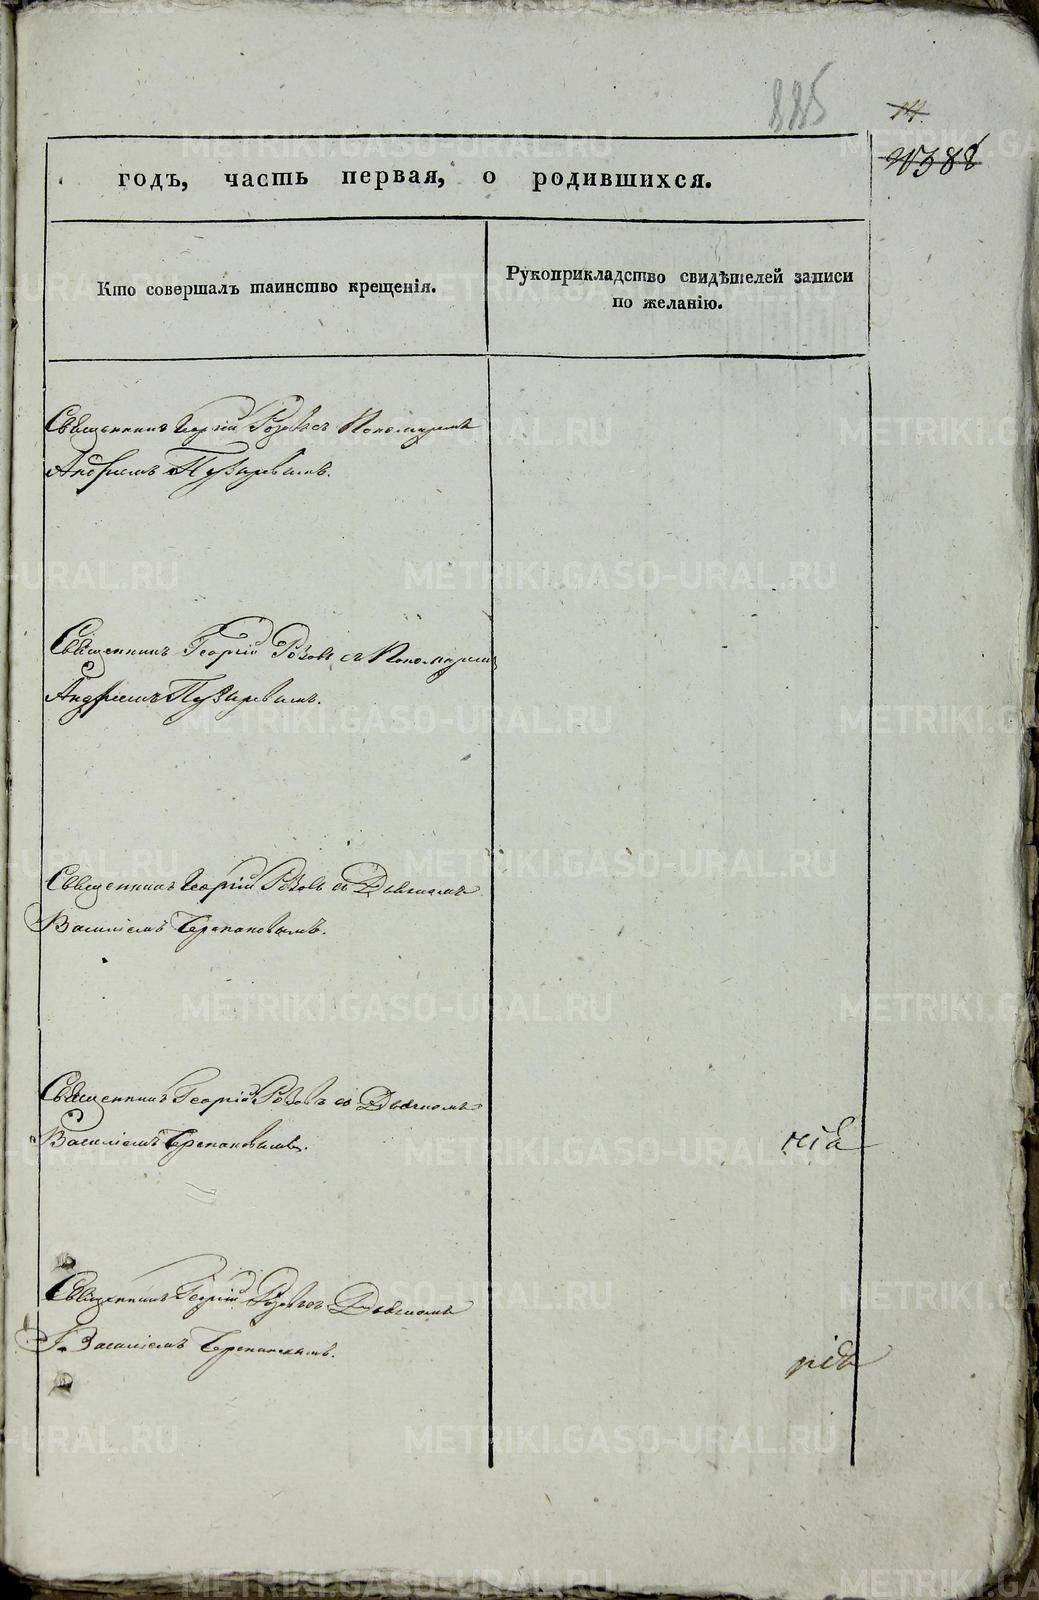 885
14
388
годъ, часть первая, о родившихся.
Кто совершалъ таинство крещенія.
Рукоприкладство свидѣтелей записи
по желанію.
Священникъ Георгій Розовъ съ Пономаремъ
Андреемъ
Священникъ Георгій Розовъ съ Пономаремъ
Андреемъ
Священникъ Георгій Розовъ съ Дьячкомъ
Василіемъ Черепановымъ.
Священникъ Георгій Розовъ съ Дьячкомъ
Василіемъ Черепановымъ.
Священникъ Георгій Розовъ съ Дьячкомъ
Василіемъ Черепановымъ.
METRIKI.GASO-URAL.RU